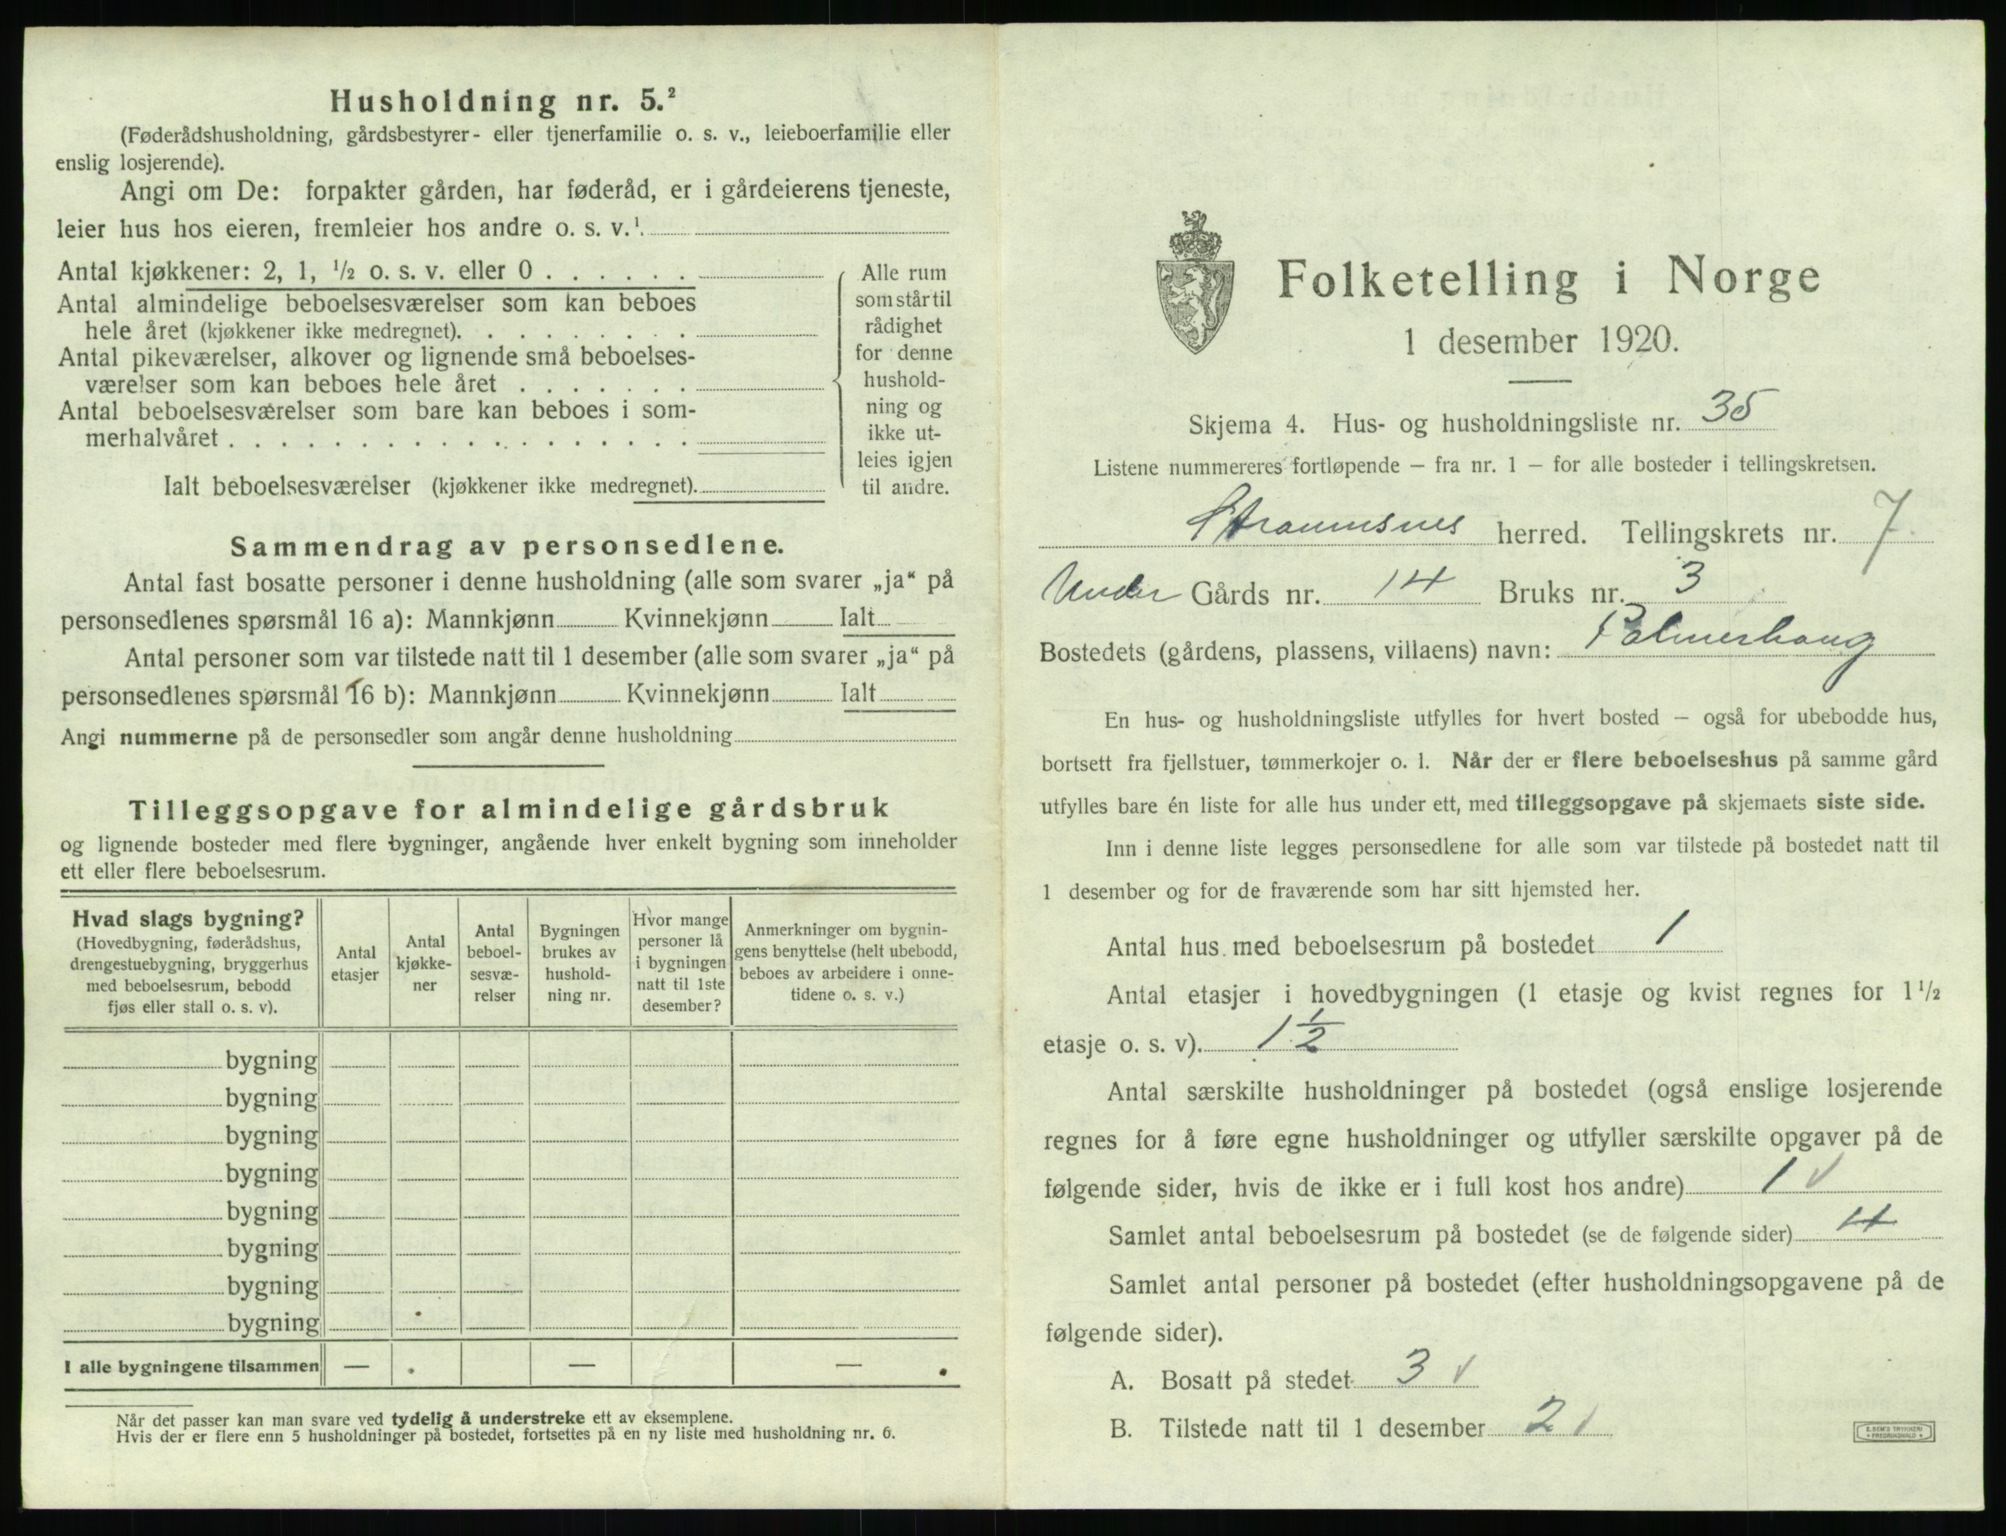 Husholdning nr. 5.²
(Føderådshusholdning, gårdsbestyrer- eller tjenerfamilie o. s. v., leieboerfamilie eller
enslig losjerende).
Angi om De: forpakter gården, har føderåd, er i gårdeierens tjeneste,
leier hus hos eieren, fremleier hos andre o. s. v.¹
Antal kjøkkener: 2, 1, ½ o. s. v. eller 0 . . . . . .
Antal almindelige beboelsesværelser som kan beboes
hele året (kjøkkener ikke medregnet). . . . . . . .
Antal pikeværelser, alkover og lignende små beboelses-
værelser som kan beboes hele året . . . . . . .
Antal beboelsesværelser som bare kan beboes i som-
merhalvåret . . . . . . . . . . . . . . . . . .
Ialt beboelsesværelser (kjøkkener ikke medregnet).
Alle rum
som står til
rådighet
for denne
hushold-
ning og
ikke ut-
leies igjen
til andre.
Sammendrag av personsedlene.
Antal fast bosatte personer i denne husholdning (alle som svarer „ja“ på
personsedlenes spørsmål 16 a): Mannkjønn Kvinnekjønn Ialt
Antal personer som var tilstede natt til 1 desember (alle som svarer „ja“ på
personsedlenes spørsmål 16 b): Mannkjønn Kvinnekjønn Ialt
Angi nummerne på de personsedler som angår denne husholdning
Tilleggsopgave for almindelige gårdsbruk
og lignende bosteder med flere bygninger, angående hver enkelt bygning som inneholder
ett eller flere beboelsesrum.
Hvad slags bygning?
(Hovedbygning, føderådshus,
drengestuebygning, bryggerhus
med beboelsesrum, bebodd
fjøs eller stall o. s. v).
Antal
etasjer
Antal
kjøkke-
ner
Antal
beboel-
sesvæ-
relser
Bygningen
brukes av
hushold-
ning nr.
Hvor mange
personer lå
i bygningen
natt til 1ste
desember?
Anmerkninger om bygnin-
gens benyttelse (helt ubebodd,
beboes av arbeidere i onne-
tidene o. s. v.)
bygning
bygning
bygning
bygning
bygning
bygning
bygning
bygning
I alle bygningene tilsammen — — —
Når det passer kan man svare ved tydelig å understreke ett av eksemplene.
Hvis der er flere enn 5 husholdninger på bostedet, fortsettes på en ny liste med husholdning nr. 6.
Folketelling i Norge
1 desember 1920.
Skjema 4. Hus- og husholdningsliste nr. 35
Listene nummereres fortløpende – fra nr. 1 – for alle bosteder i tellingskretsen.
Straumsnes herred. Tellingskrets nr. 7
Under Gårds nr. 14 Bruks nr. 3
Bostedets (gårdens, plassens, villaens) navn: Palmerhaug
En hus- og husholdningsliste utfylles for hvert bosted – også for ubebodde hus,
bortsett fra fjellstuer, tømmerkojer o. l. Når der er flere beboelseshus på samme gård
utfylles bare én liste for alle hus under ett, med tilleggsopgave på skjemaets siste side.
Inn i denne liste legges personsedlene for alle som var tilstede på bostedet natt til
1 desember og for de fraværende som har sitt hjemsted her.
Antal hus med beboelsesrum på bostedet 1
Antal etasjer i hovedbygningen (1 etasje og kvist regnes for 1½
etasje o. s. v). 1½
Antal særskilte husholdninger på bostedet (også enslige losjerende
regnes for å føre egne husholdninger og utfyller særskilte opgaver på de
følgende sider, hvis de ikke er i full kost hos andre) 1 ✓
Samlet antal beboelsesrum på bostedet (se de følgende sider) 4
Samlet antal personer på bostedet (efter husholdningsopgavene på de
følgende sider).
A. Bosatt på stedet 3 ✓
B. Tilstede natt til 1 desember 2 ✓
E. SEM'S TRYKKERI
FREDRIKSHALD